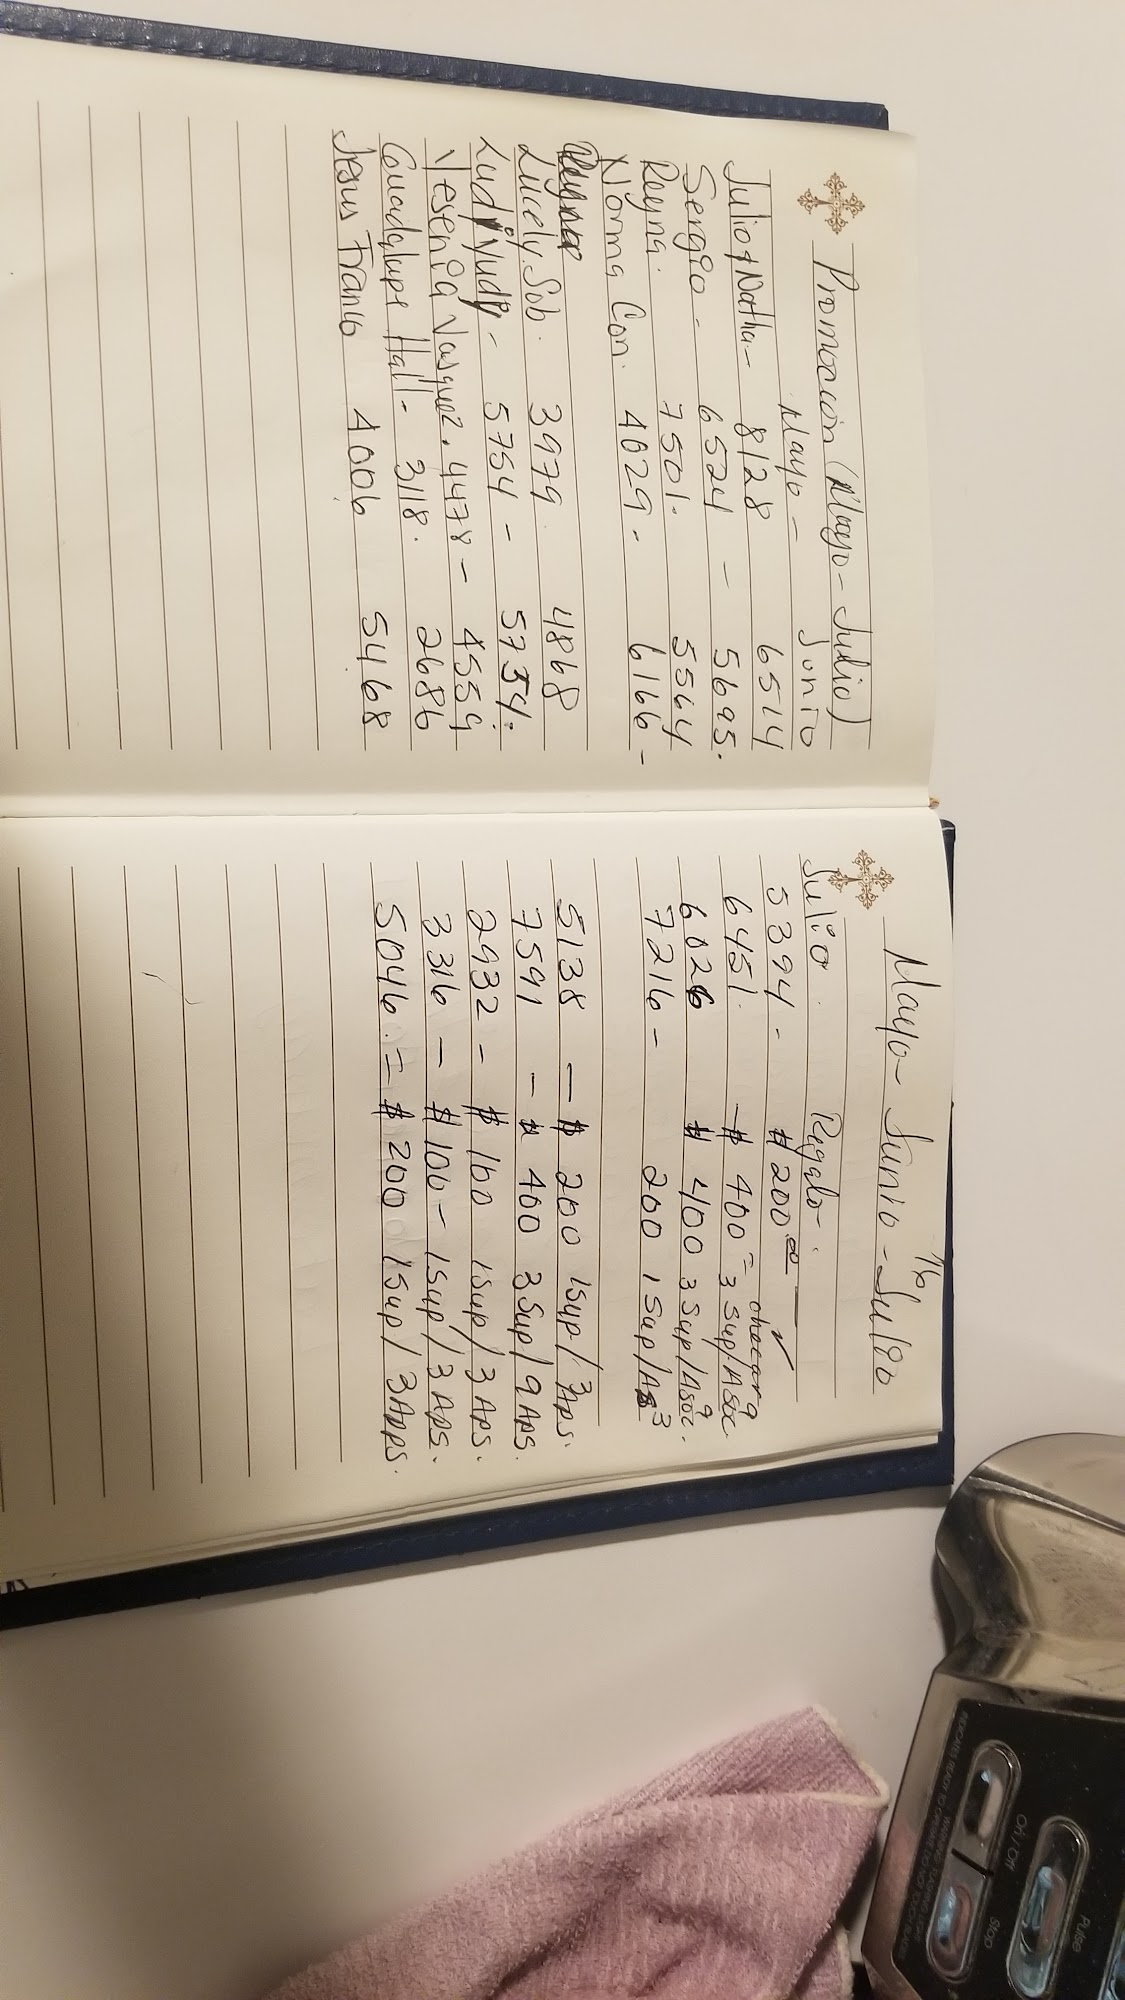 Promocion (Mayo - Julio)
Mayo - Junio
Julio y Natha - 8128 6514
Sergio - 6524 - 5695.
Reyna. 7501. 5564
Norma Con. 4029. 6166 -
Lucely Sob. 3979. 4868
Ludi Yudi - 5754 - 5754.
Yesenia Vasquez. 4478 - 4559
Guadalupe Hall - 3118. 2686
Jesus Franco 4006 5468
7/6
Mayo - Junio - Julio
Julio. Regalo -
5394 - # 200.00 — ✓
6451. - # 400 = 3 Sup/Asoc. 9
6026 # 400 3 Sup/Asoc. 9
7216 - 200 1 Sup/As 3
5138 - # 200 1 Sup/3 Aps.
7591 - # 400 3 Sup/9 Aps.
2932 - # 100 1 Sup/3 Aps.
3316 - # 100 - 1 Sup/3 Aps.
5046. = # 200 1 Sup/3 Apps.
INDICATES READY TO OPERATE
On / Off
Pulse
Stop